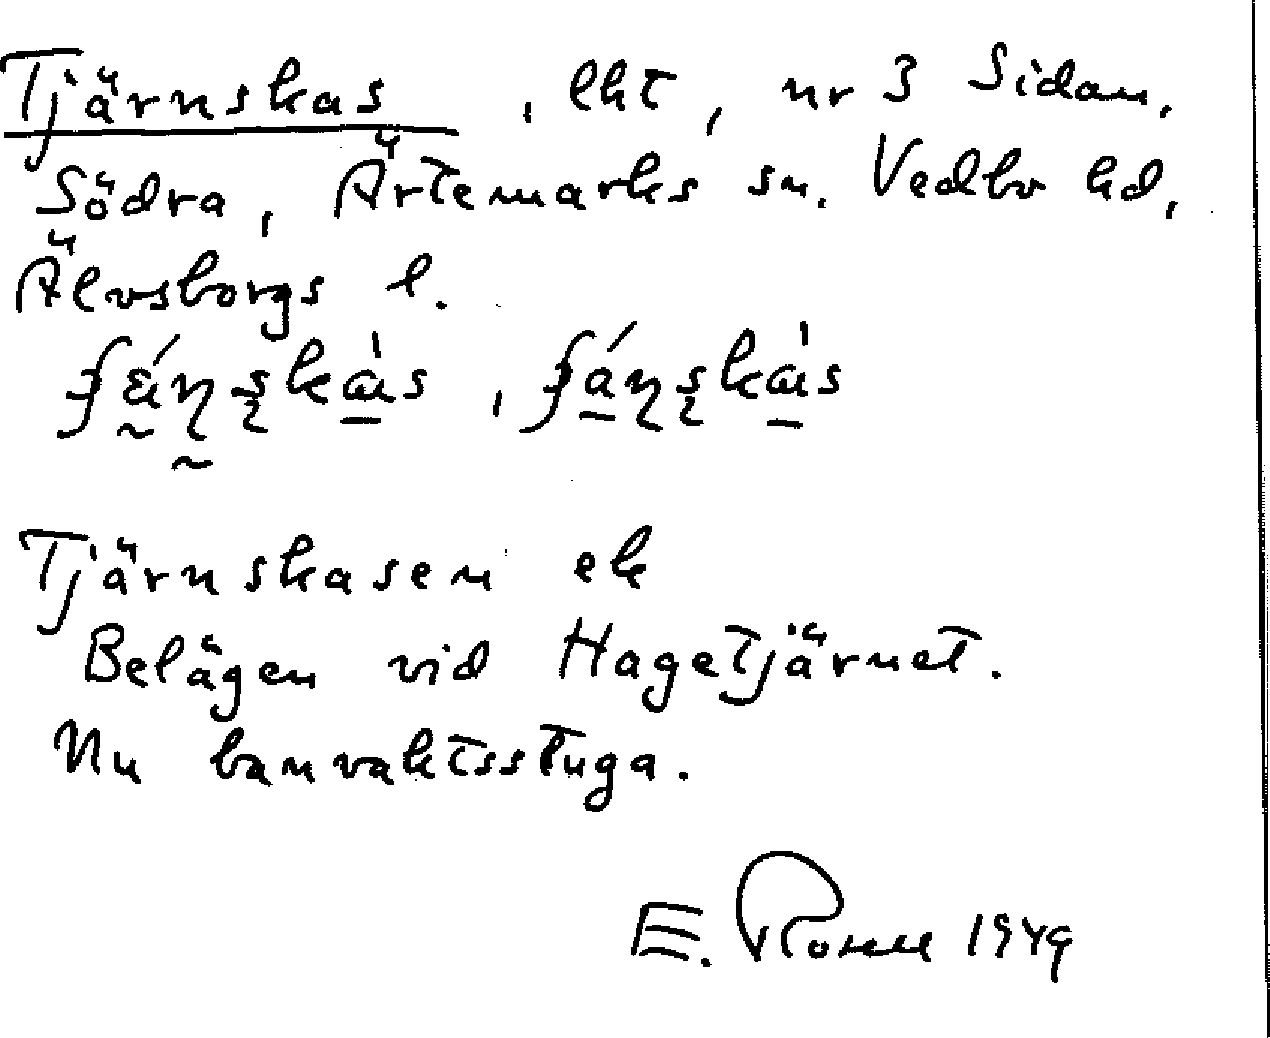 Tjärnskas, lht, nr 3 Sidan,
Södra, Ärtemarks sn. Vedbo hd,
Älvsborgs l.
Tjärnskasen ek
Belägen vid Hagetjärnet.
Nu banvaktsstuga.
E. 1949